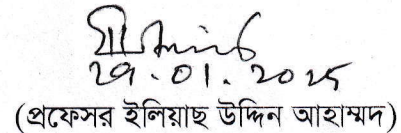 ২৭.01.2025
(প্রফেসর ইলিয়াছ উদ্দিন আহাম্মদ)